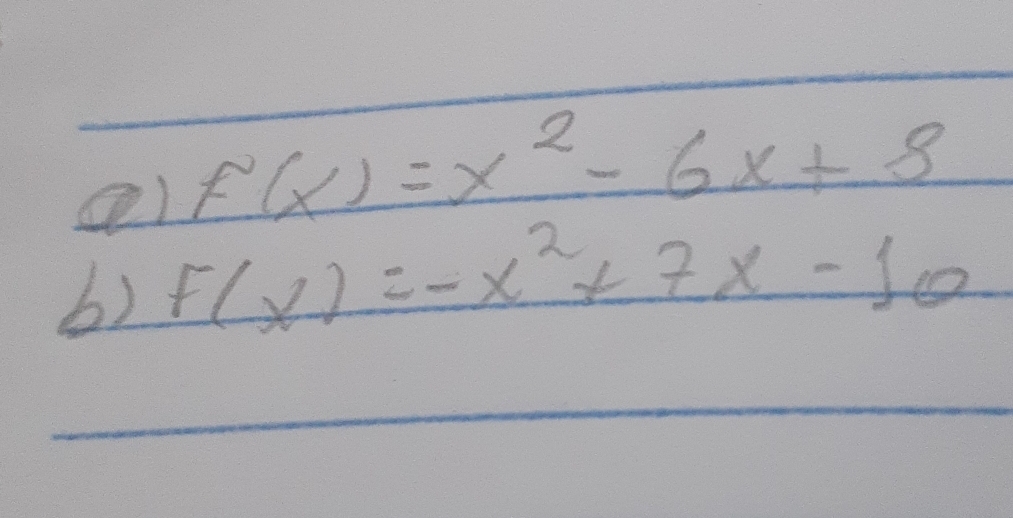 a) F(x) = x² - 6x + 8
b) F(x) = -x² + 7x - 10